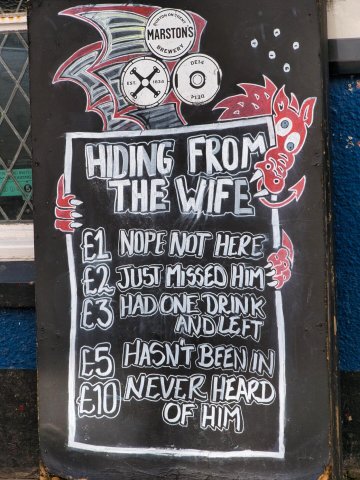 BURTON-ON-TRENT
MARSTONS
BREWERY
EST. 1834
DE14
PEDI
HIDING FROM
THE WIFE
£1 NOPE NOT HERE
£2 JUST MISSED HIM
£3 HAD ONE DRINK
AND LEFT
£5 HASN'T BEEN IN
£10 NEVER HEARD
OF HIM